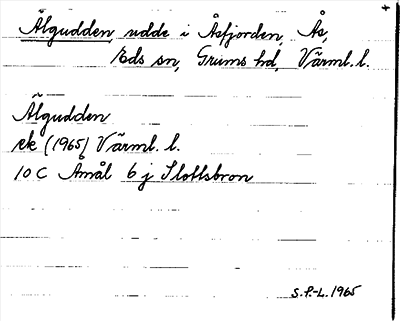 Älgudden, udde i Åsfjorden, Ås,
Eds sn, Grums hd, Värml. l.
Älgudden
ek (1965) Värml. l.
10 C Åmål 6 j Slottsbron
S.P.-L. 1965